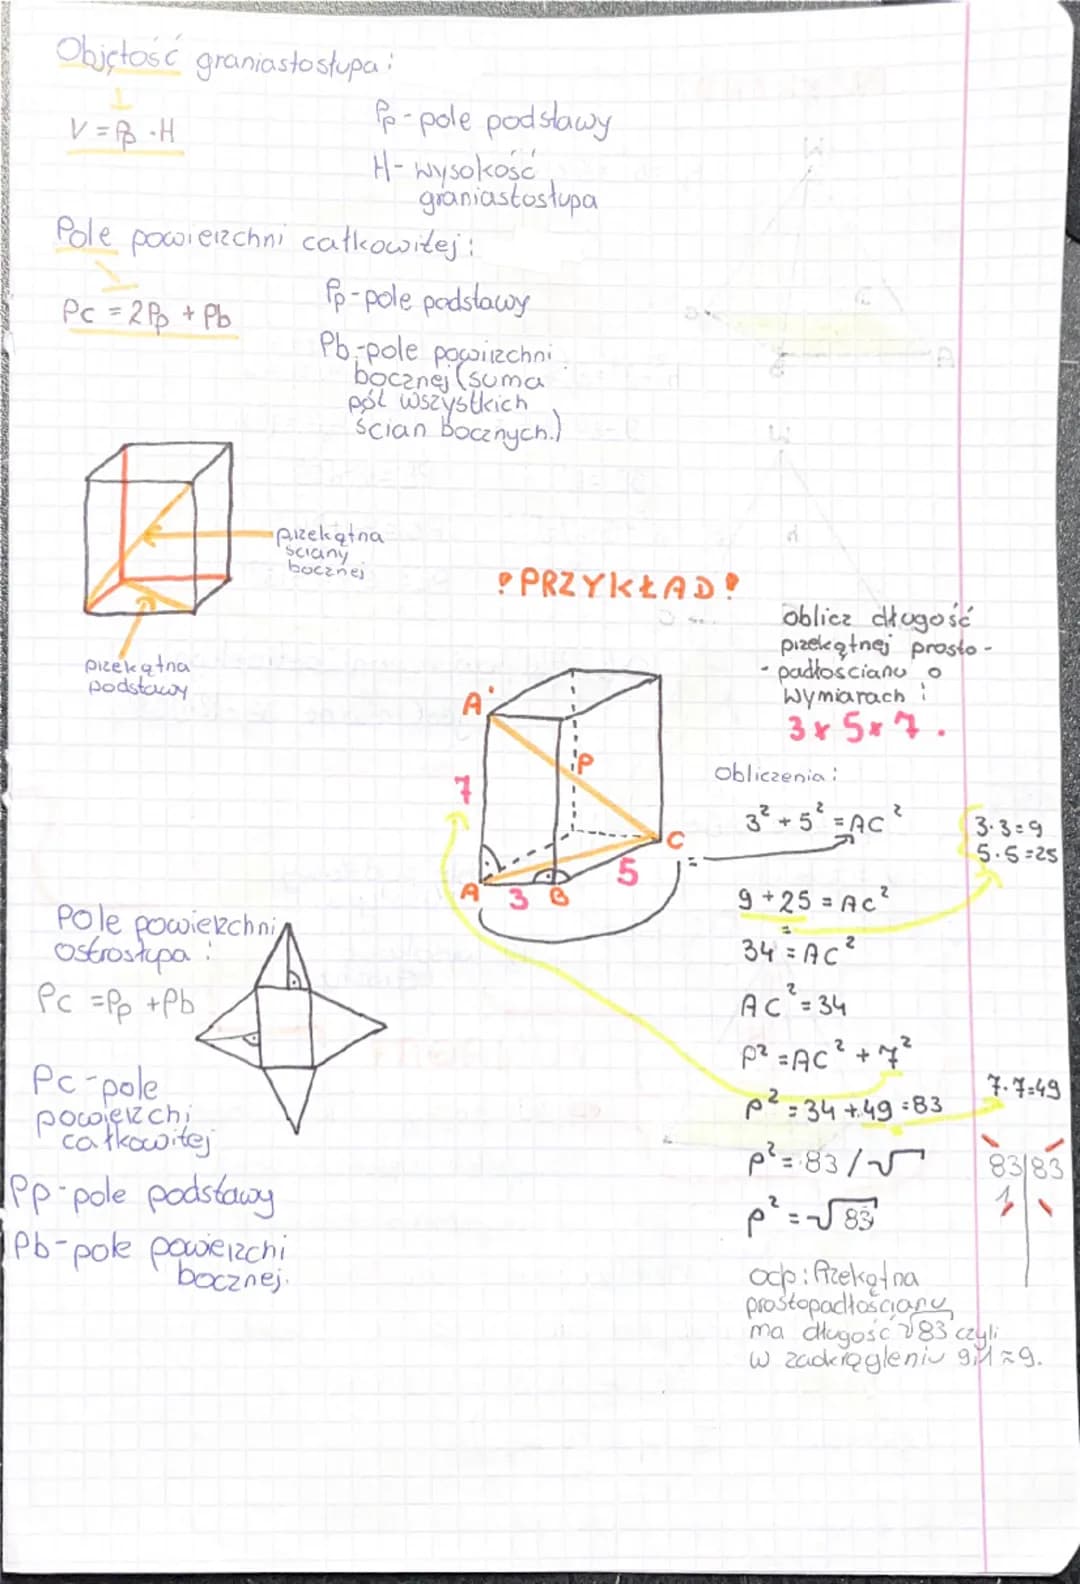 Objętość graniastosłupa:
V = Pp · H
Pp - pole podstawy
H - wysokość
graniastosłupa
Pole powierzchni całkowitej:
Pc = 2Pp + Pb
Pp - pole podstawy
Pb - pole powirzchni
bocznej (suma
pól wszystkich
ścian bocznych.)
przekątna
ściany
bocznej
przekątna
podstawy
!PRZYKŁAD!
oblicz długość
przekątnej prosto-
-padłościanu o
wymiarach:
3 x 5 x 7.
A'
7
P
C
5
A 3 B
Obliczenia:
3² + 5² = AC²
3·3=9
5·5=25
=
9 + 25 = AC²
=
34 = AC²
AC² = 34
p² = AC² + 7²
p² = 34 + 49 = 83
7·7=49
p² = 83 /√
83|83
1|
p² = √83
odp: Przekątna
prostopadłościanu
ma długość √83 czyli
w zaokrągleniu 9,1 ≈ 9.
Pole powierzchni
ostrosłupa:
Pc = Pp + Pb
Pc - pole
powierzchi
całkowitej
Pp - pole podstawy
Pb - pole powierzchi
bocznej.